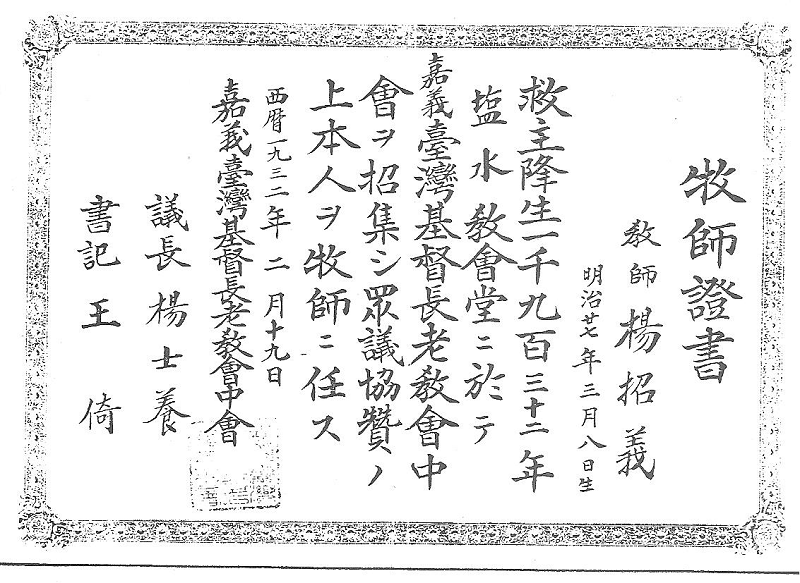 牧師證書
教師 楊招義
明治廿七年三月八日生
救主降生一千九百三十二年
塩水教會堂ニ於テ
嘉義臺灣基督長老教會中
會ヲ招集シ眾議協贊ノ
上本人ヲ牧師ニ任ス
西曆一九三二年二月十九日
嘉義臺灣基督長老教會中會
議長 楊士養
書記 王倚